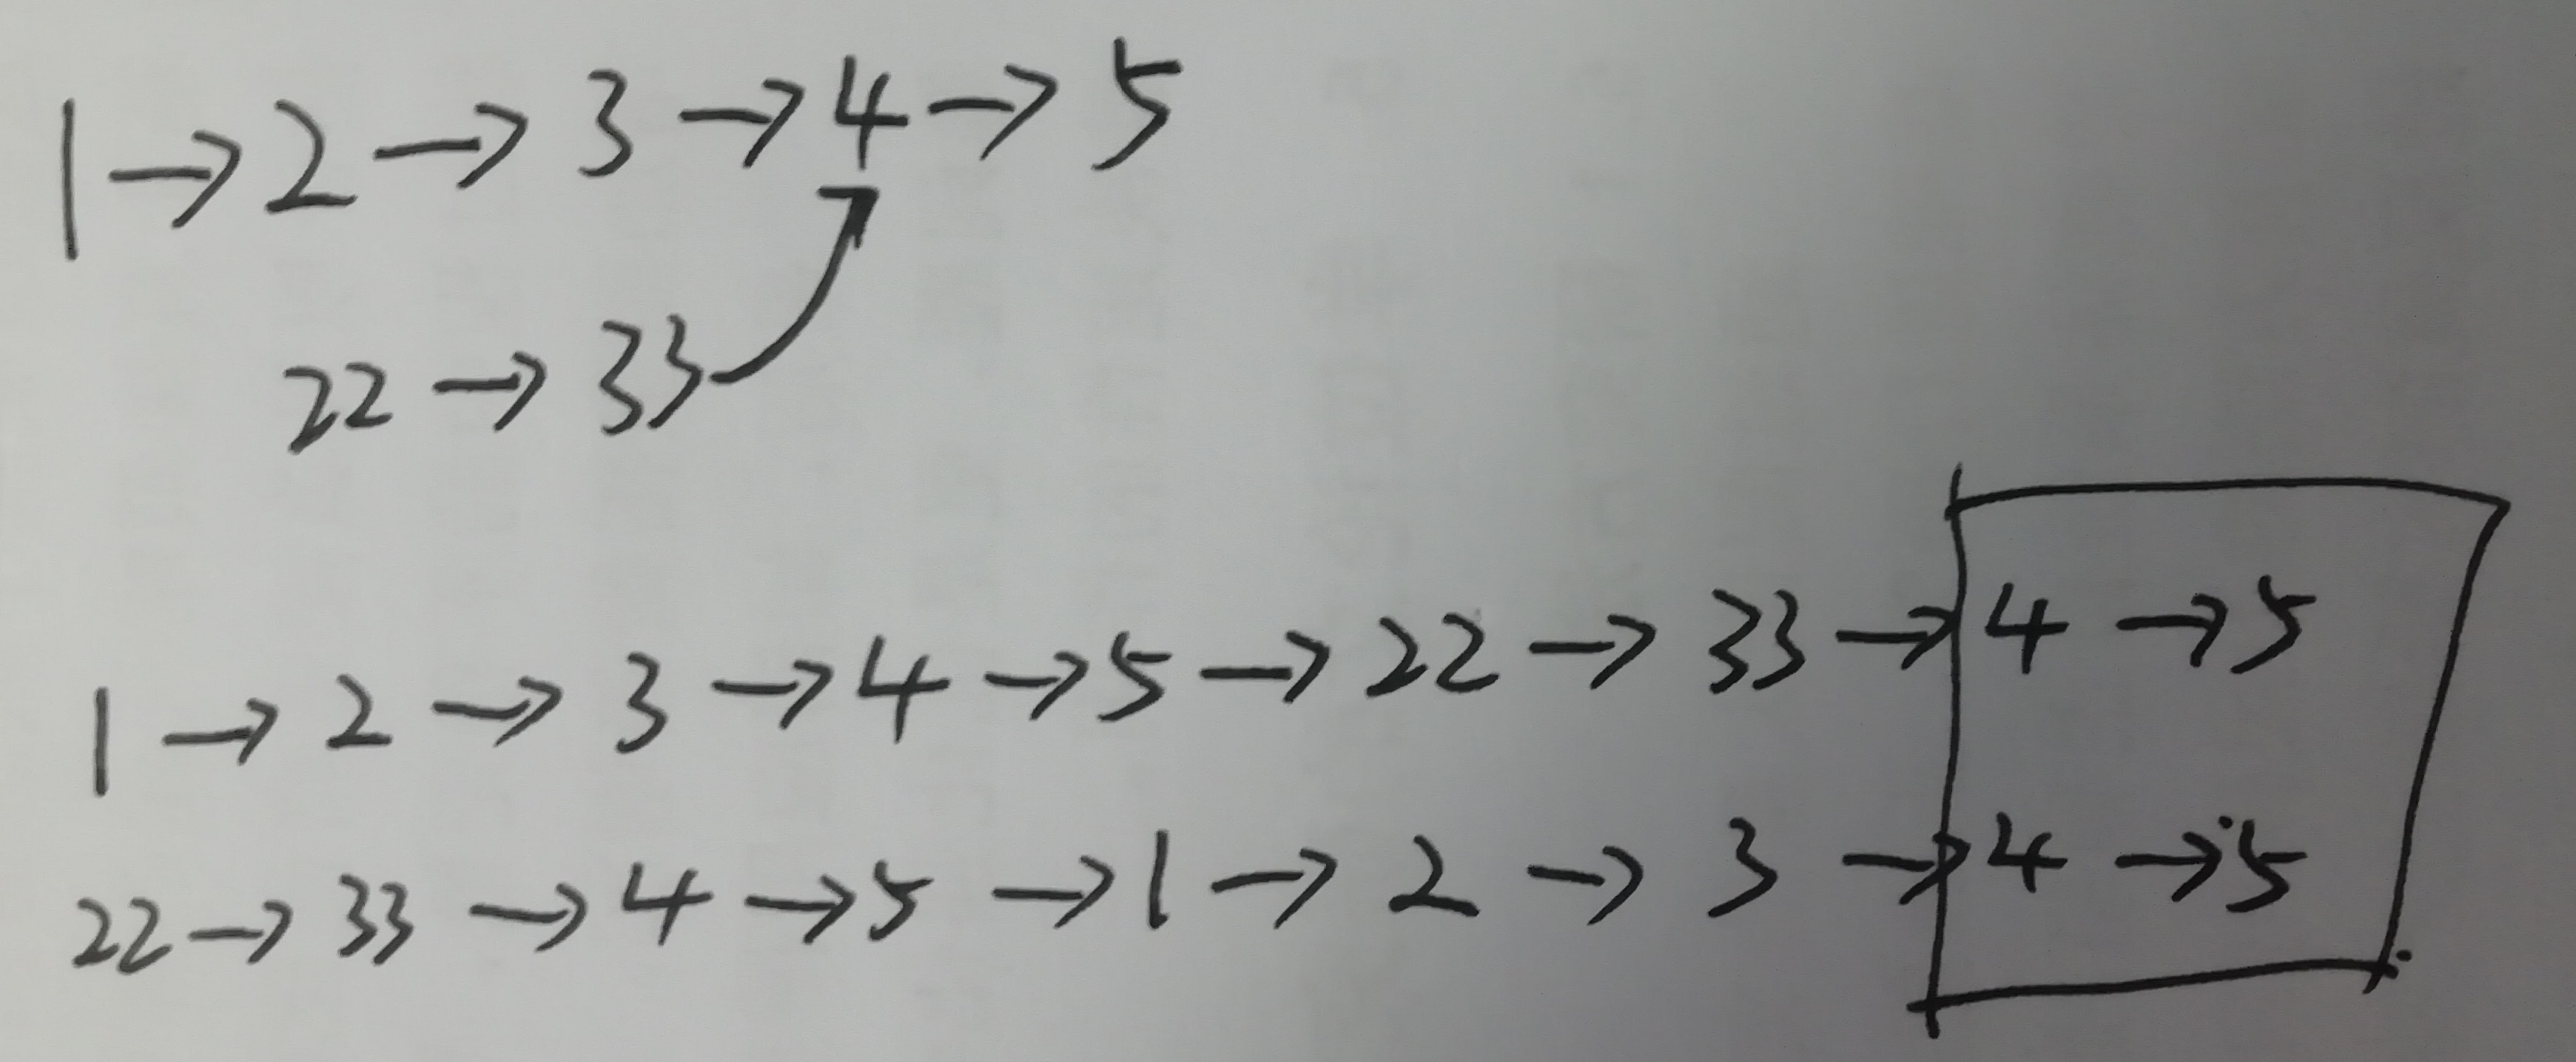 1 → 2 → 3 → 4 → 5
22 → 33
1 → 2 → 3 → 4 → 5 → 22 → 33 → 4 → 5
22 → 33 → 4 → 5 → 1 → 2 → 3 → 4 → 5